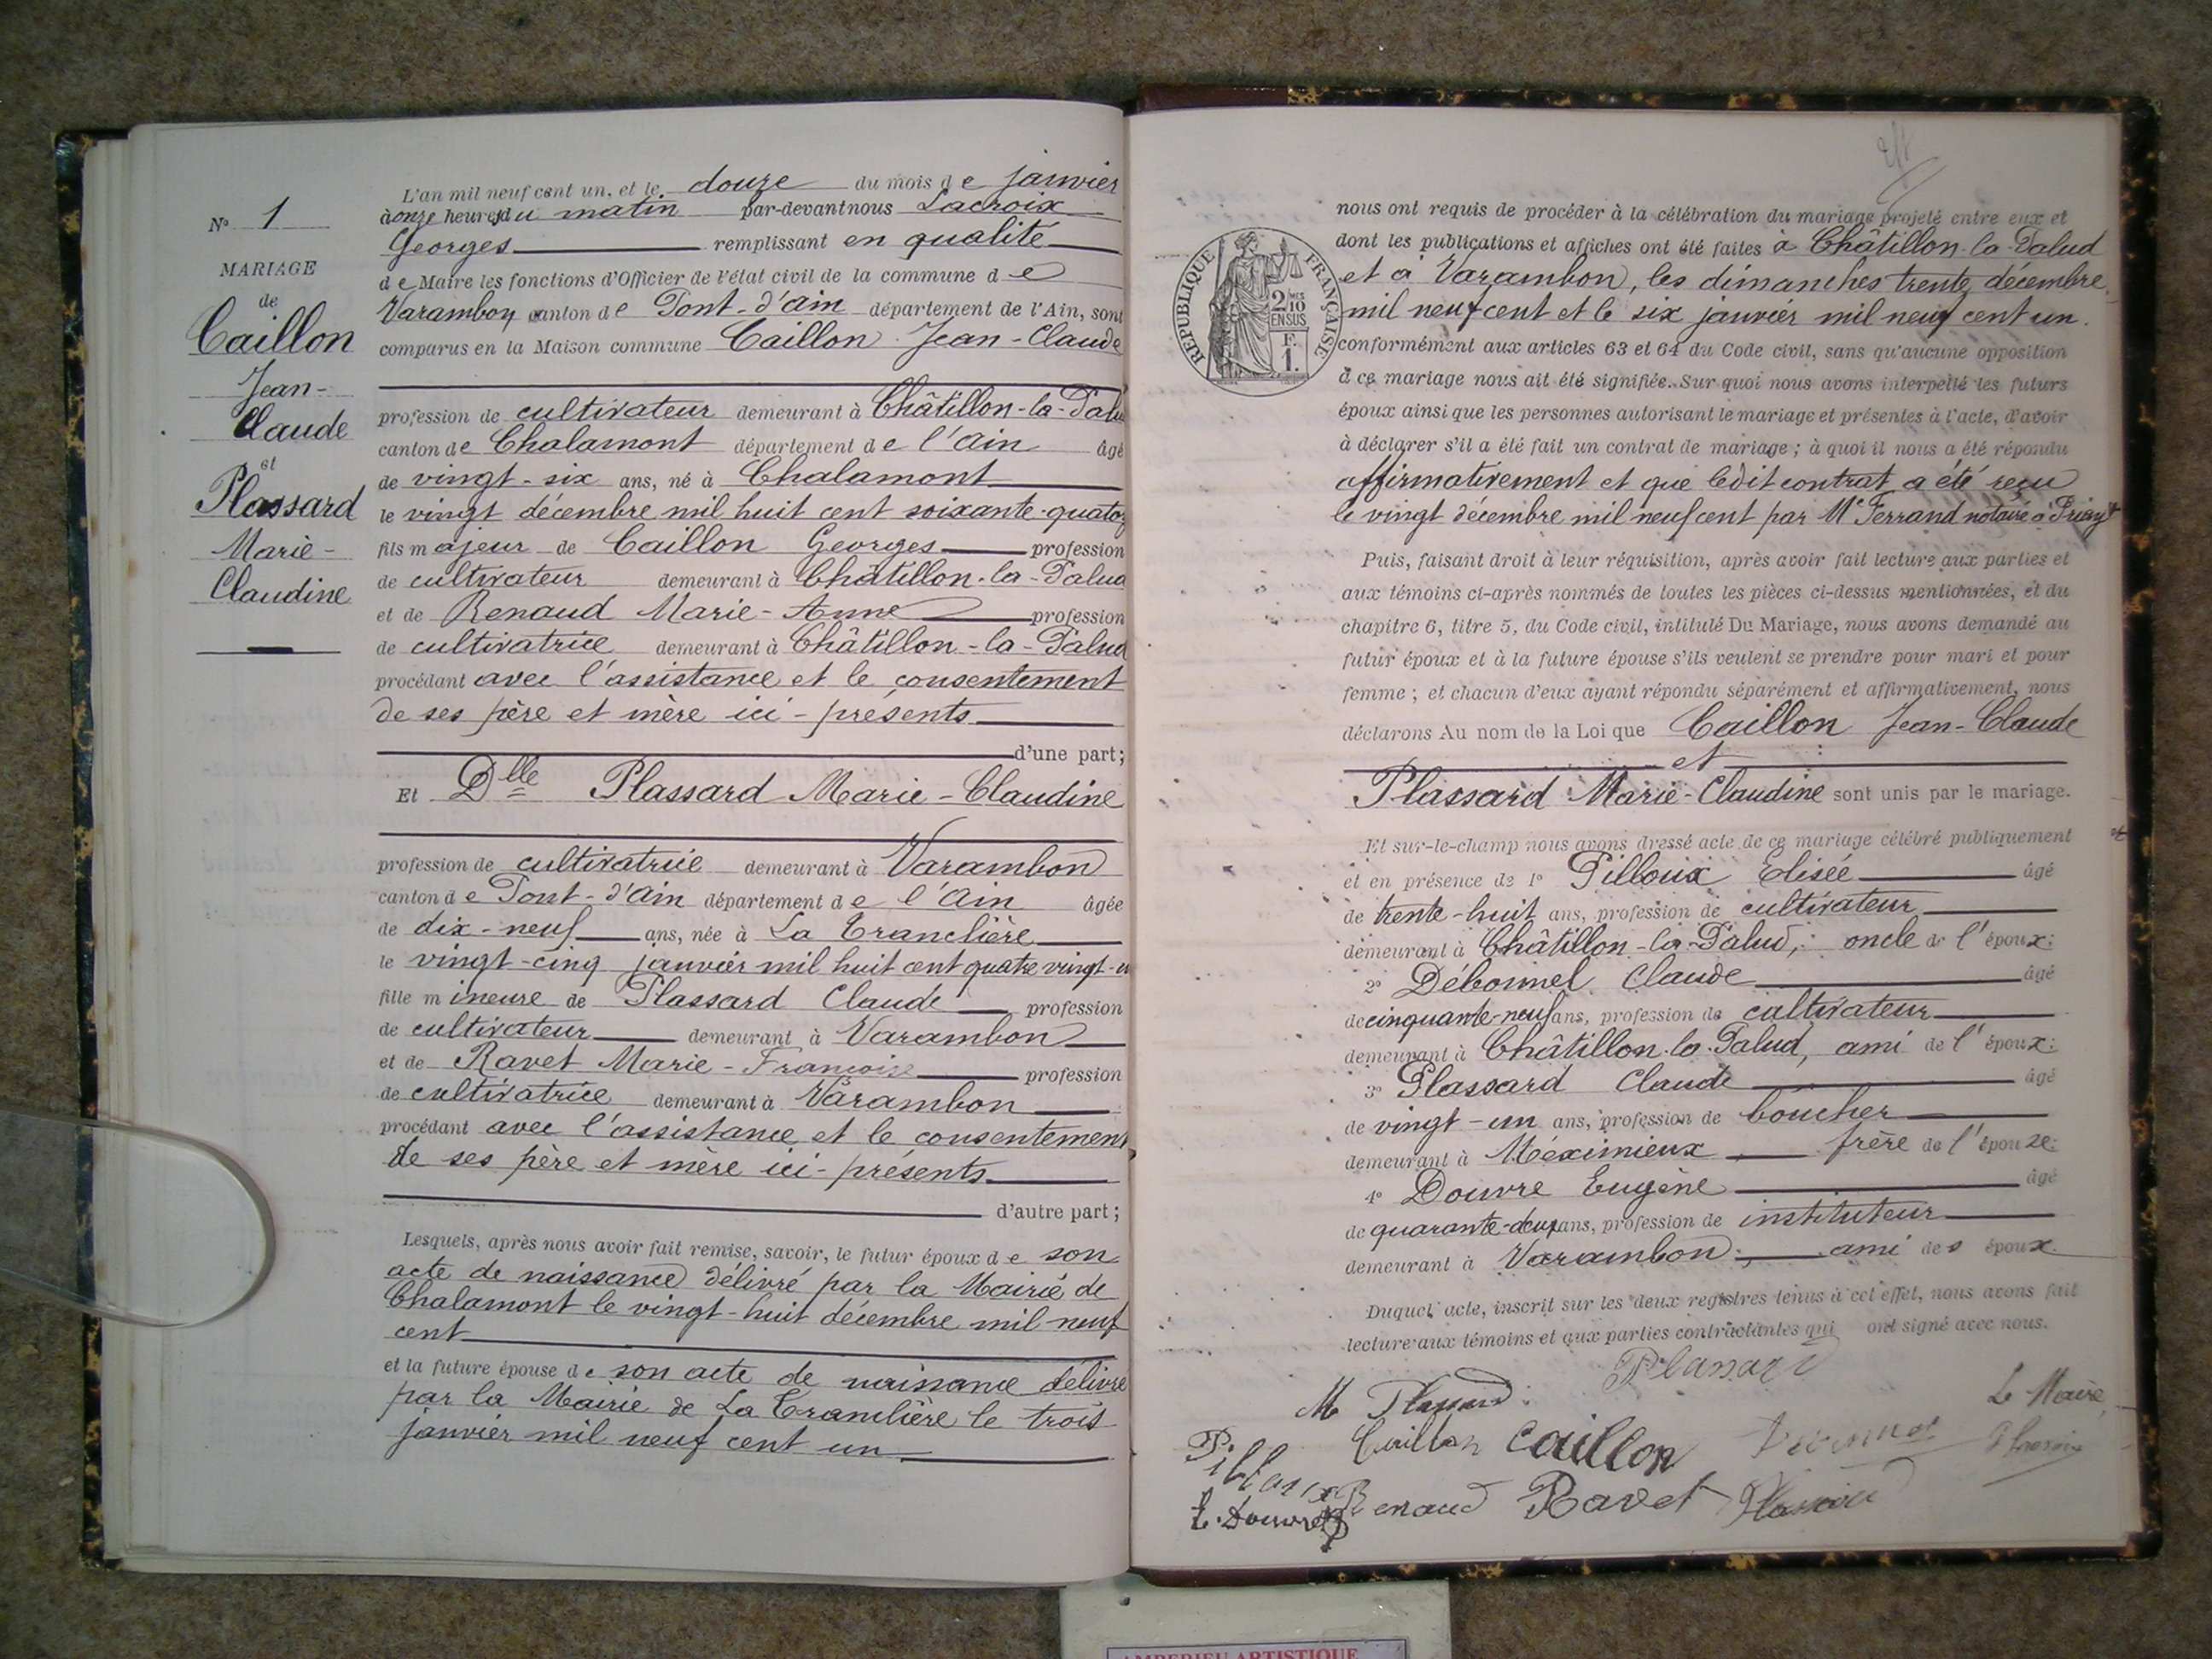 N° 1
MARIAGE
de
Caillon
Jean-
Claude
et
Plassard
Marie-
Claudine
L'an mil neuf cent un, et le douze du mois de janvier
à onze heures du matin par-devant nous Lacroix
Georges remplissant en qualité
de Maire les fonctions d'Officier de l'état civil de la commune de
Varambon canton de Pont-d'Ain département de l'Ain, sont
comparus en la Maison commune Caillon Jean-Claude
profession de cultivateur demeurant à Châtillon-la-Palu
canton de Chalamont département de l'Ain âgé
de vingt-six ans, né à Chalamont
le vingt décembre mil huit cent soixante-quatorz
fils majeur de Caillon Georges profession
de cultivateur demeurant à Châtillon-la-Palud
et de Renaud Marie-Anne profession
de cultivatrice demeurant à Châtillon-la-Palud
procédant avec l'assistance et le consentement
de ses père et mère ici-présents
d'une part;
Et Dlle Plassard Marie-Claudine
profession de cultivatrice demeurant à Varambon
canton de Pont-d'Ain département de l'Ain âgée
de dix-neuf ans, née à La Tranclière
le vingt-cinq janvier mil huit cent quatre vingt-u
fille mineure de Plassard Claude profession
de cultivateur demeurant à Varambon
et de Ravet Marie-Françoise profession
de cultivatrice demeurant à Varambon
procédant avec l'assistance et le consentement
de ses père et mère ici-présents
d'autre part;
Lesquels, après nous avoir fait remise, savoir, le futur époux de son
acte de naissance délivré par la Mairie de
Chalamont le vingt-huit décembre mil neuf
cent
et la future épouse de son acte de naissance délivré
par la Mairie de La Tranclière le trois
janvier mil neuf cent un
RÉPUBLIQUE FRANÇAISE
2/10 MES
EN SUS
F.
1.
nous ont requis de procéder à la célébration du mariage projeté entre eux et
dont les publications et affiches ont été faites à Châtillon-la-Palud
et à Varambon, les dimanches trente décembre
mil neuf cent et le six janvier mil neuf cent un.
conformément aux articles 63 et 64 du Code civil, sans qu'aucune opposition
à ce mariage nous ait été signifiée. Sur quoi nous avons interpellé les futurs
époux ainsi que les personnes autorisant le mariage et présentes à l'acte, d'avoir
à déclarer s'il a été fait un contrat de mariage; à quoi il nous a été répondu
affirmativement et que ledit contrat a été reçu
le vingt décembre mil neuf cent par Me Ferrand notaire à Priay
Puis, faisant droit à leur réquisition, après avoir fait lecture aux parties et
aux témoins ci-après nommés de toutes les pièces ci-dessus mentionnées, et du
chapitre 6, titre 5, du Code civil, intitulé Du Mariage, nous avons demandé au
futur époux et à la future épouse s'ils veulent se prendre pour mari et pour
femme; et chacun d'eux ayant répondu séparément et affirmativement, nous
déclarons Au nom de la Loi que Caillon Jean-Claude
et
Plassard Marie-Claudine sont unis par le mariage.
Et sur-le-champ nous avons dressé acte de ce mariage célébré publiquement
et en présence de 1° Pilloux Elisée âgé
de trente-huit ans, profession de cultivateur
demeurant à Châtillon-la-Palud, oncle de l'époux;
2° Débonnel Claude âgé
de cinquante-neuf ans, profession de cultivateur
demeurant à Châtillon-la-Palud, ami de l'époux;
3° Plassard Claude âgé
de vingt-un ans, profession de boucher
demeurant à Méximieux frère de l'épouse;
4° Douvre Eugène âgé
de quarante-deux ans, profession de instituteur
demeurant à Varambon; ami des époux.
Duquel acte, inscrit sur les deux registres tenus à cet effet, nous avons fait
lecture aux témoins et aux parties contractantes qui ont signé avec nous.
Plassard
M Plassard
Le Maire,
Caillon Caillon
Pilloux
Renaud Ravet Plassard
E. Douvre
AMBERIEU ARTISTIQUE